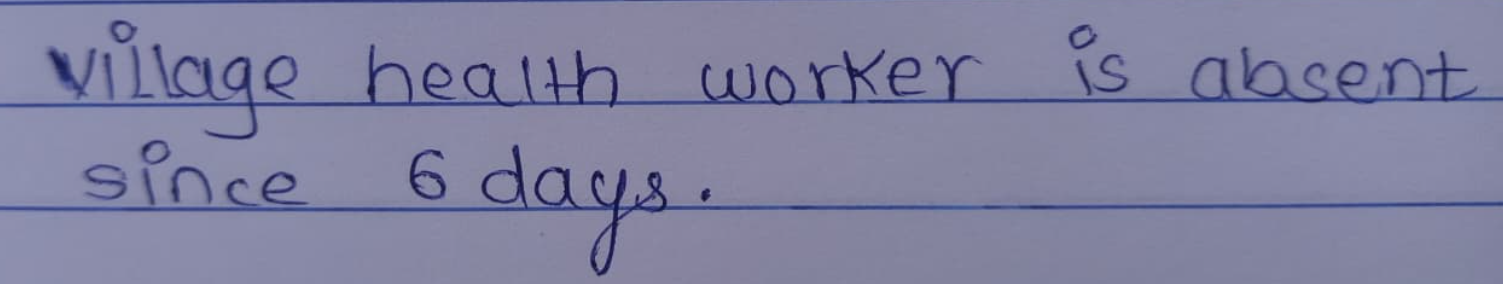 village health worker is absent
since 6 days.